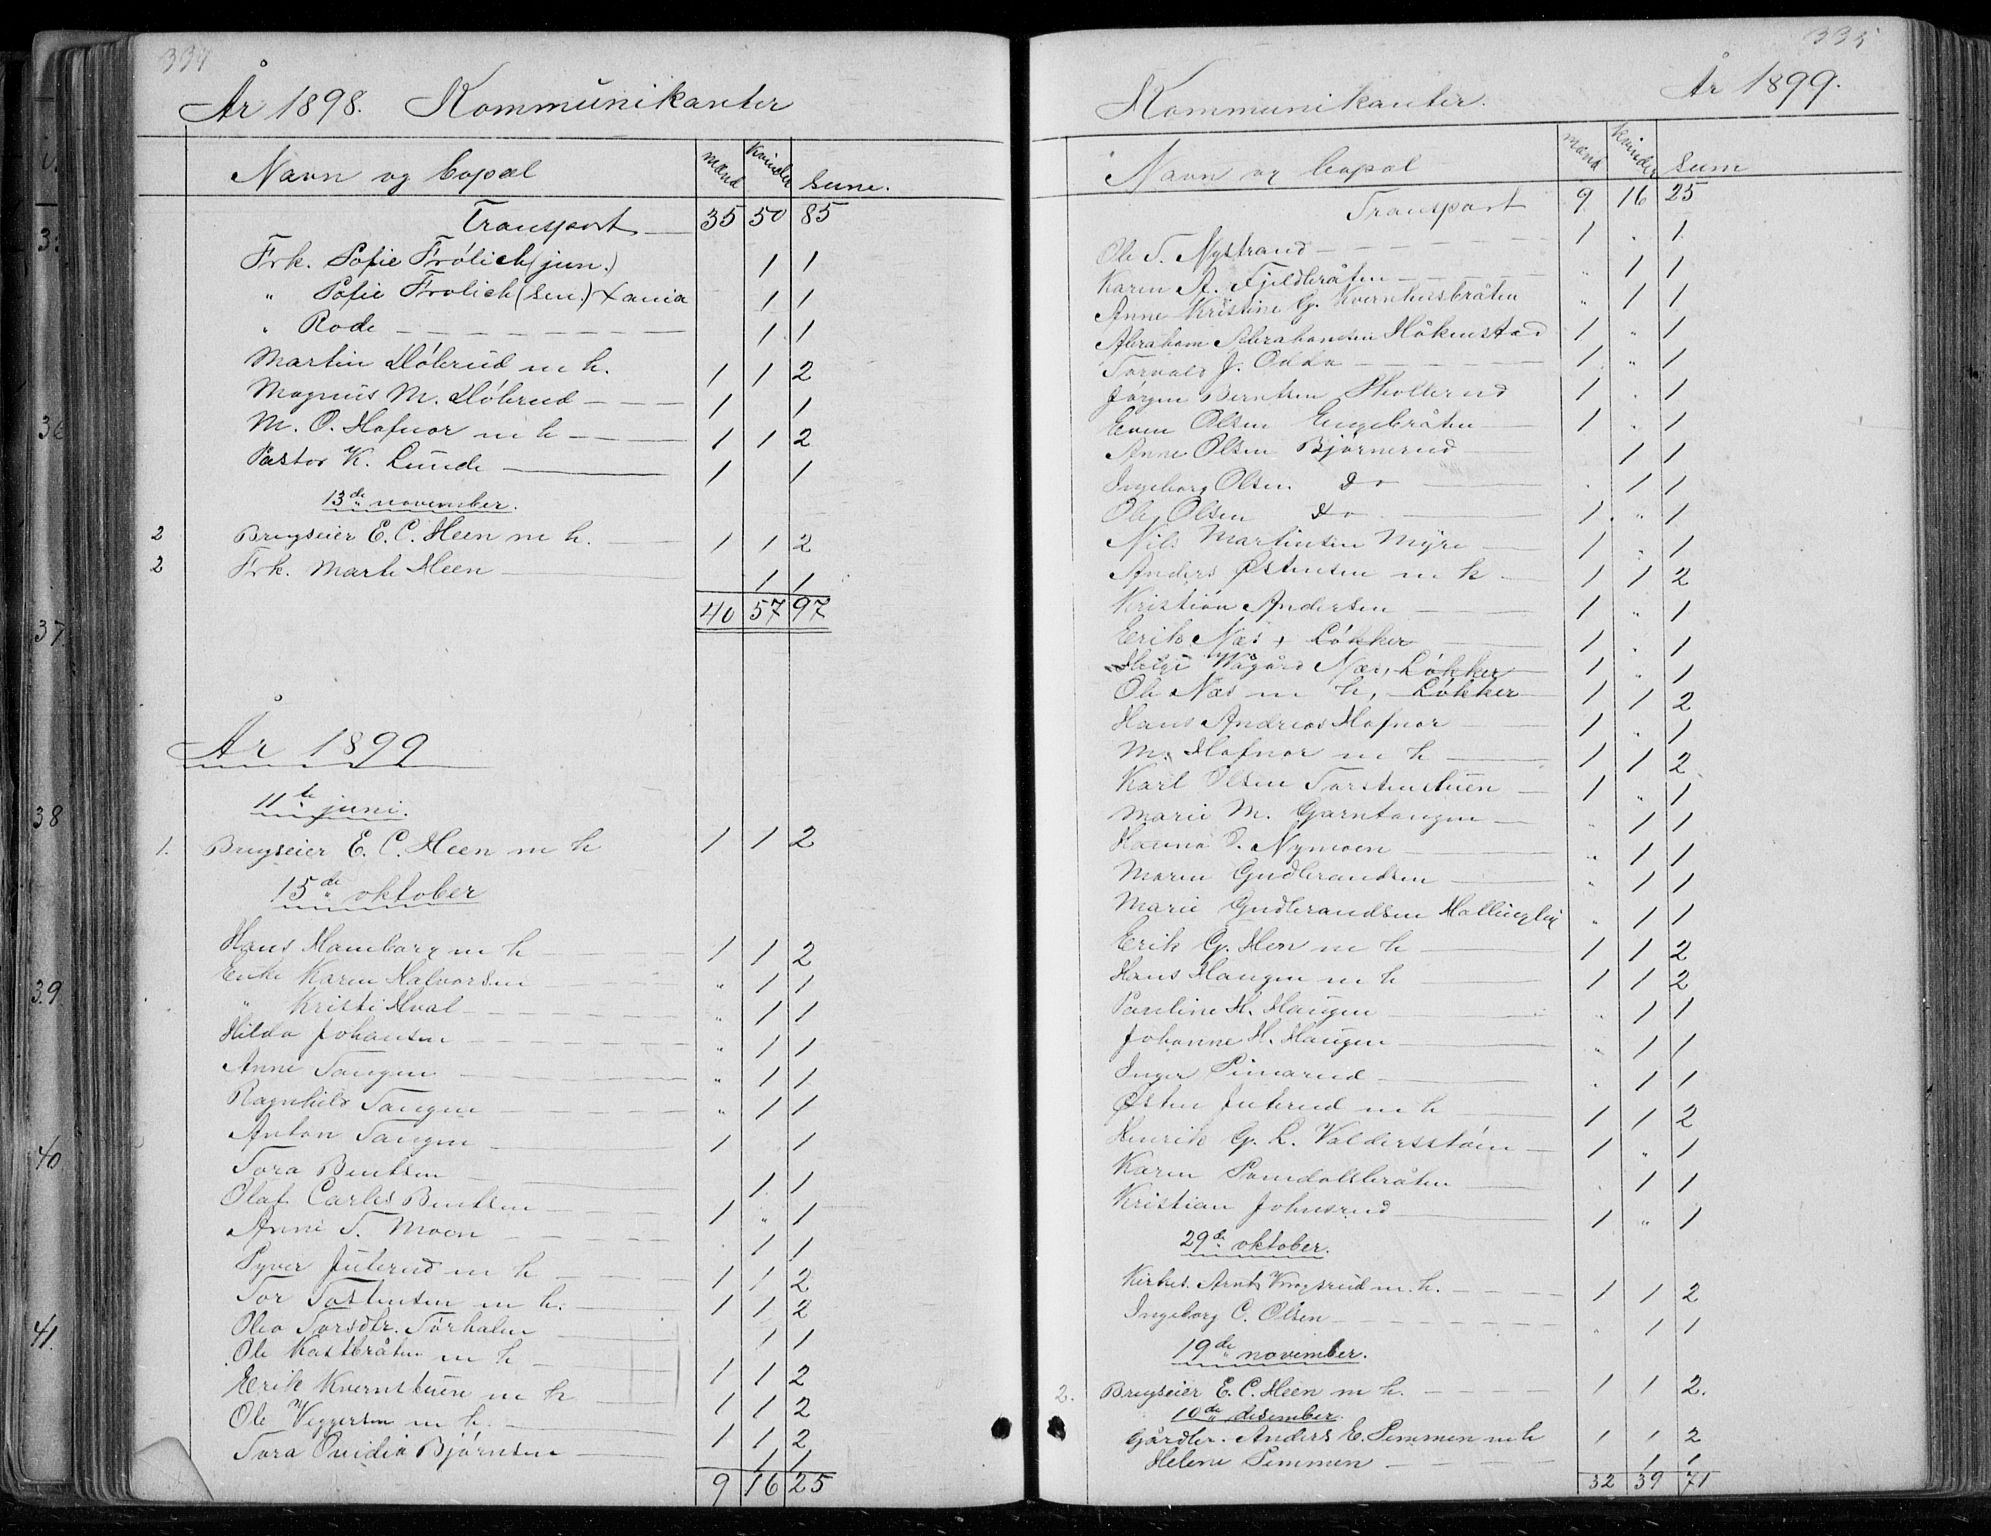 334
År 1898. Kommunikanter
Navn og bopæl mænd kvinder sum.
Transport 35 50 85
Frk. Sofie Frølich (jun.) 1 1
" Sofie Frølich (sen.) Xania 1 1
" Rode 1 1
Martin Høbrud m h. 1 1 2
Magnus M. Høbrud 1 1
M. O. Hafnor m h 1 1 2
Pastor K. Lunde 1 1
13de november.
2 Brugseier E. C. Heen m h. 1 1 2
2 Frk. Marte Heen 1 1
40 57 97
År 1899
11te juni.
1. Brugseier E. C. Heen m h 1 1 2
15de oktober
Hans Hamborg m h 1 1 2
Enke Karen Halvorsen " 1 1
" Kristi Hval " 1 1
Hilda Johansen " 1 1
Anne Tangen " 1 1
Ragnhild Tangen " 1 1
Anton Tangen 1 " 1
Tora Bentsen 1 1
Olaf Carlos Bentsen 1 " 1
Anne T. Moen 1 1
Syver Juterud m h 1 1 2
Tor Tostensen m h. 1 1 2
Olea Torsdtr. Tørhalen 1 1
Ole Kastbråten m h 1 1 2
Erik Kvernstuen m h 1 1 2
Ole Veggersen m h. 1 1 2
Tora Ovidia Bjørnsen 1 1
9 16 25
335
Kommunikanter. År 1899.
Navn og bopæl mænd kvinder sum
Transport 9 16 25
Ole T. Nystrand 1 " 1
Karen A. Fjeldbråten " 1 1
Anne Kristine G. Kvernhusbråten " 1 1
Abraham Abrahamsen Håkenstad 1 " 1
Torvald J. Odda 1 " 1
Jørgen Berntsen Skollerud 1 " 1
Even Olsen Engebråten 1 " 1
Anne Olsen Bjørnerud 1 1
Ingeborg Olsen Do " 1 1
Ole Olsen Do 1 " 1
Nils Martinsen Myre 1 " 1
Anders Østensen m h 1 1 2
Kristian Andersen 1 " 1
Erik Næs, Løkker 1 " 1
Helge Vågård Næs, Løkker 1 " 1
Ole Næs m h, Løkker 1 1 2
Hans Andreas Hafnor 1 " 1
M. Hafnor m h 1 1 2
Karl Olsen Torstenstuen 1 " 1
Marie M. Garntangen " 1 1
Hanna O. Nymoen " 1 1
Maren Gudbrandsen " 1 1
Marie Gudbrandsen Hallingby " 1 1
Erik G. Hen m h 1 1 2
Hans Haugen m h 1 1 2
Pauline H. Haugen " 1 1
Johanne H. Haugen " 1 1
Inger Simarud " 1 1
Østen Juterud m h 1 1 2
Henrik G. L. Valdersstøen 1 " 1
Karen Samdalsbråten " 1 1
Kristian Johnsrud 1 " 1
29de oktober.
Kirkes. Arnt Krogsrud m. h. 1 1 2
Ingeborg C. Olsen " 1 1
19de november.
2. Brugseier E. C. Heen m h. 1 1 2.
10de desember.
Gårdbr. Anders E. Semmen m h 1 1 2
Helene Semmen 1 1
32 39 71
36
37.
38
39.
40
41.